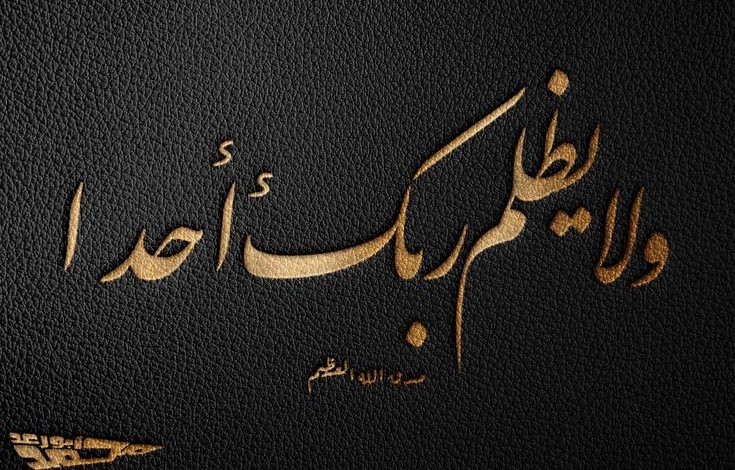 ولا يظلم ربك أحدا
صدق الله العظيم